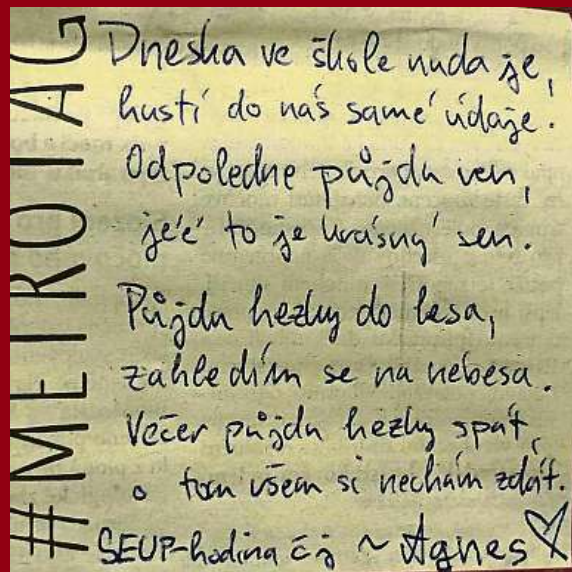 #METROTAG
Dneska ve škole nuda je,
hustí do nás samé údaje.
Odpoledne půjdu ven,
jéé to je krásný sen.
Půjdu hezky do lesa,
zahledím se na nebesa.
Večer půjdu hezky spát,
o tom všem si nechám zdát.
SEUP-hodina čj ~ Agnes